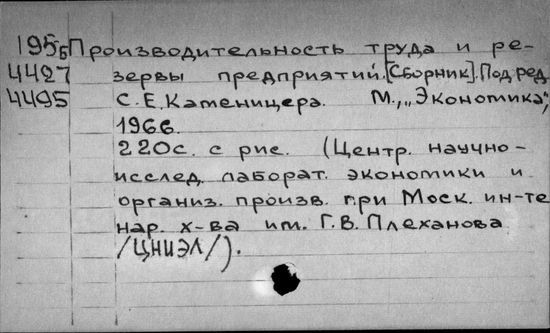 195Б Производительность труда и ре-
4427 зервы предприятий. [Сборник]. Под ред.
4495 С.Е. Каменицера. М., „Экономика",
1966.
220с. с рис. (Центр. научно-
исслед. лаборат. экономики и
организ. произв. при Моск. ин-те
нар. х-ва им. Г.В. Плеханова
/ЦНИЭЛ/).